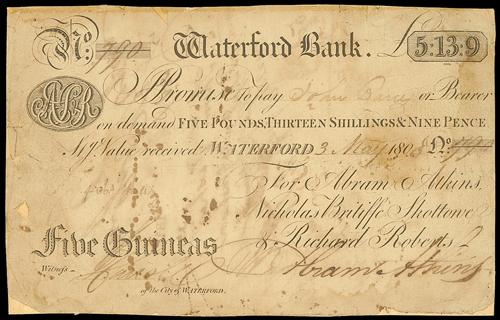 No: 790 Waterford Bank. £ 5:13:9
I Promise to pay John or Bearer
on demand FIVE POUNDS, THIRTEEN SHILLINGS & NINE PENCE
Value received. WATERFORD 3 May 1808 No: 790
For Abram Atkins,
Nicholas Britiffe Skottowe
Five Guineas & Richard Roberts
Witness Abram Atkins
of the City of WATERFORD.